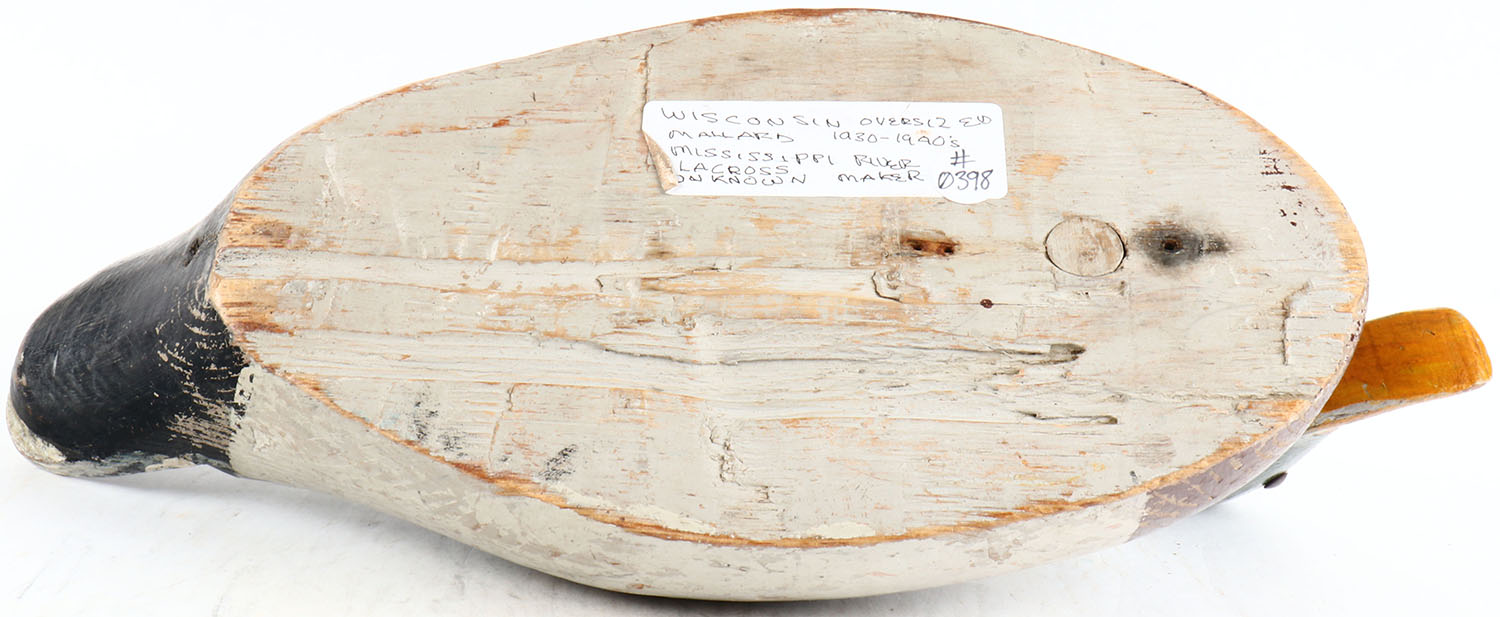 WISCONSIN OVERSIZED
MALLARD 1930-1940's
MISSISSIPPI RIVER #
LACROSS
UNKNOWN MAKER 0398